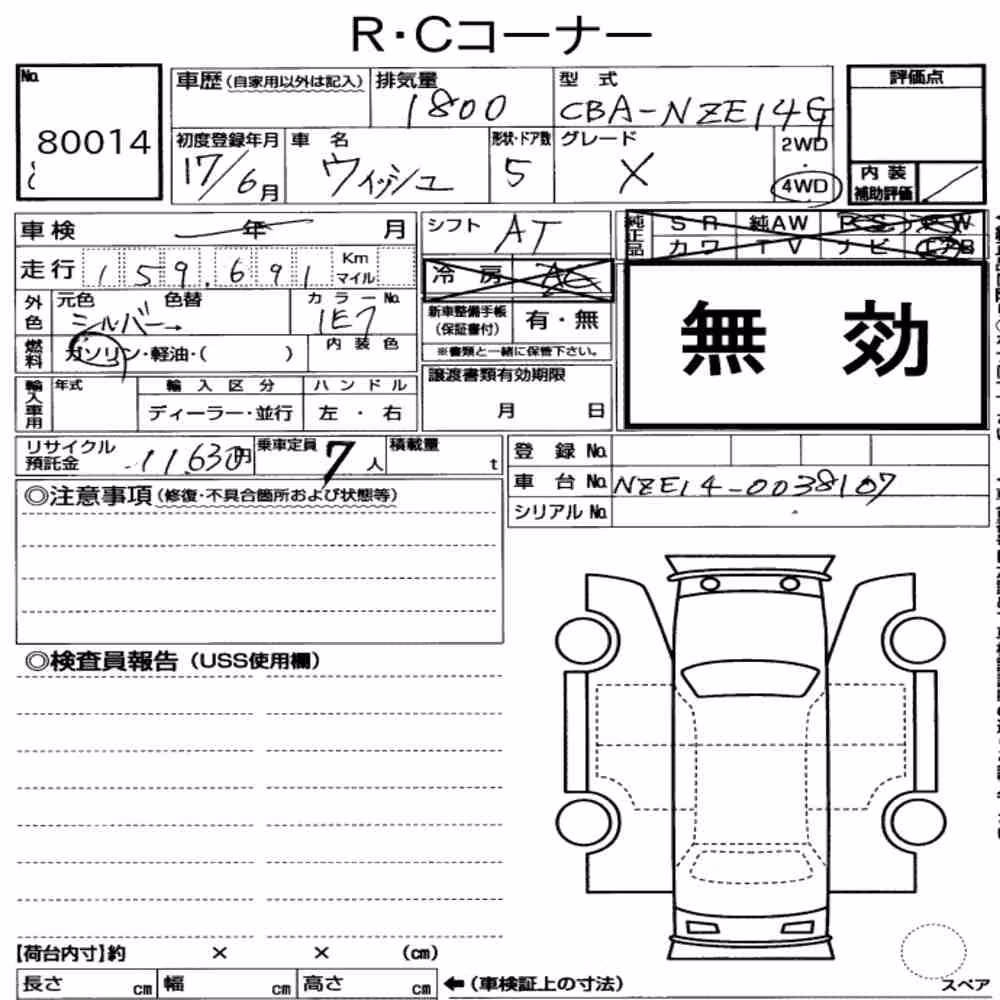 R・Cコーナー
No.
80014
車歴(自家用以外は記入)
排気量
1800
型 式
CBA-NZE14G
初度登録年月
17/6月
車 名
ウィッシュ
形状・ドア数
5
グレード
X
2WD
・
4WD
評価点
内 装
補助評価
車検 年 月
シフト
AT
純正品
SR 純AW PS PW
カワ TV ナビ エアB
走行 159,691 Km
マイル
冷 房 AC
無 効
外色
元色 色替
シルバー→
カラーNo.
1E7
新車整備手帳
(保証書付)
有・無
※書類と一緒に保管下さい。
燃料
ガソリン・軽油・( )
内 装 色
輸入車用
年式
輸 入 区 分
ディーラー・並行
ハ ン ド ル
左 ・ 右
譲渡書類有効期限
月 日
リサイクル
預託金
11,630円
乗車定員
7人
積載量
t
登 録 No.
車 台 No. NZE14-0038107
シリアル No.
◎注意事項(修復・不具合箇所および状態等)
◎検査員報告(USS使用欄)
【荷台内寸】約 × × (cm)
長さ cm 幅 cm 高さ cm
←(車検証上の寸法)
スペア